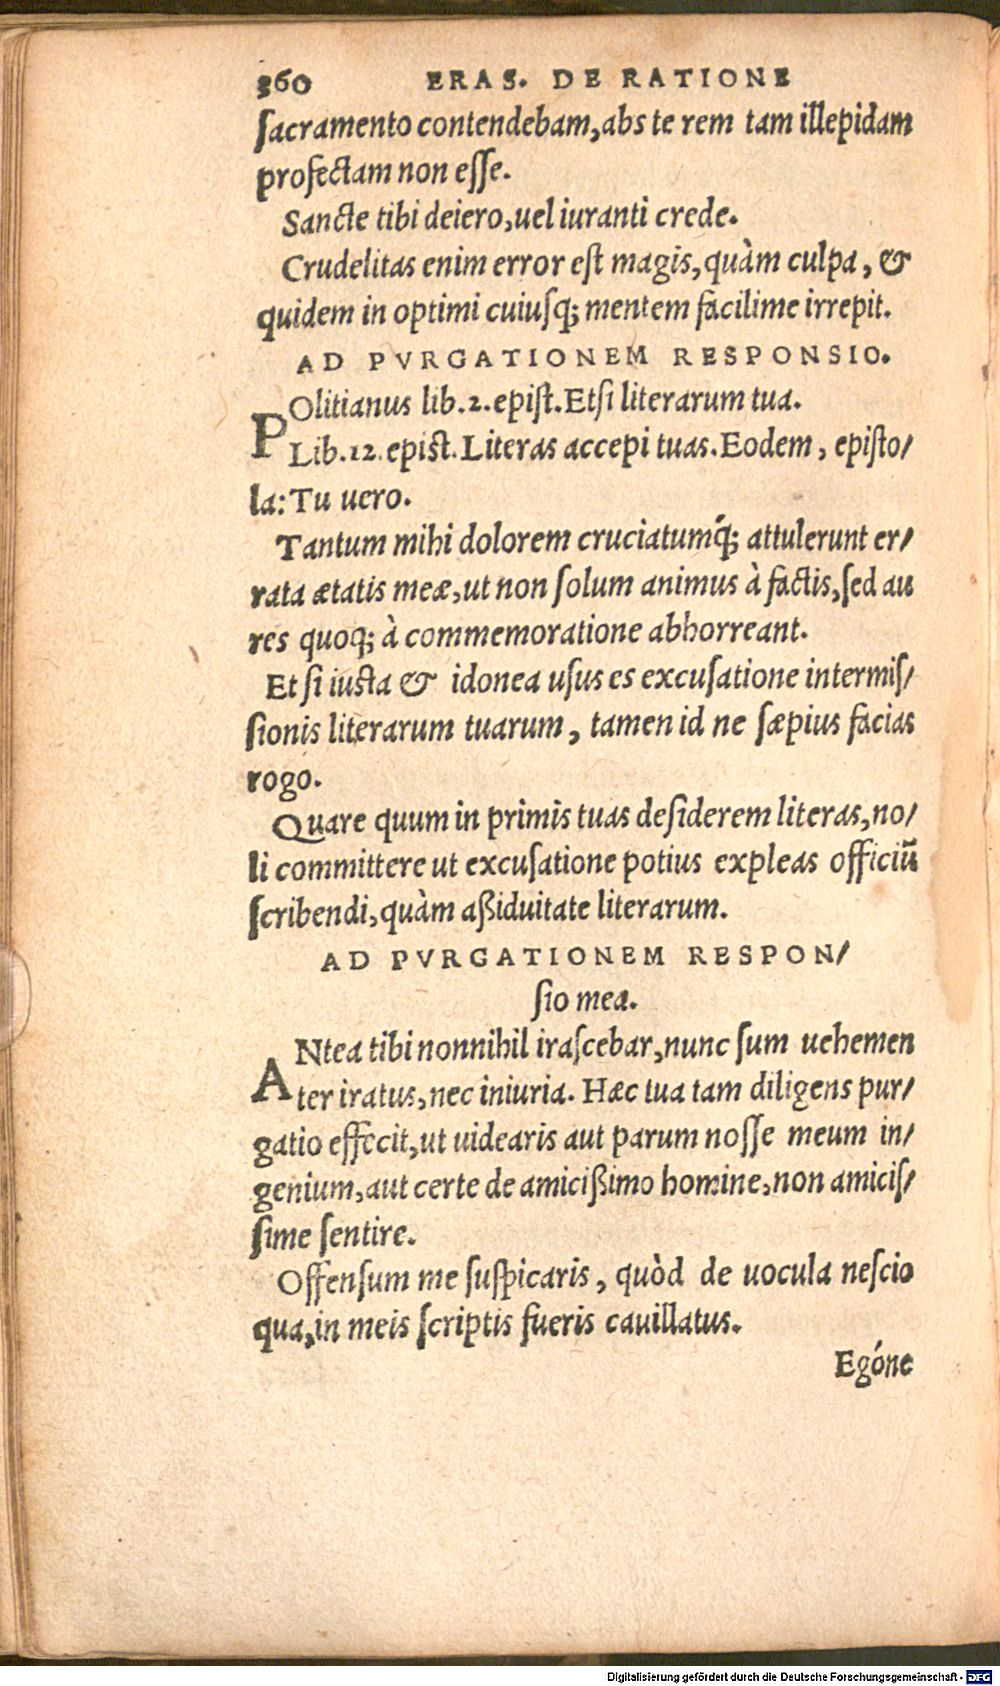 360 ERAS. DE RATIONE
sacramento contendebam, abs te rem tam illepidam
profectam non esse.
Sancte tibi deiero, uel iuranti crede.
Crudelitas enim error est magis, quàm culpa, &
quidem in optimi cuiusq; mentem facilime irrepit.
AD PVRGATIONEM RESPONSIO.
POlitianus lib. 2. epist. Etsi literarum tua.
Lib. 12. epist. Literas accepi tuas. Eodem, episto/
la: Tu uero.
Tantum mihi dolorem cruciatumq́; attulerunt er/
rata ætatis meæ, ut non solum animus à factis, sed au
res quoq; à commemoratione abhorreant.
Et si iusta & idonea usus es excusatione intermis/
sionis literarum tuarum, tamen id ne sæpius facias
rogo.
Quare quum in primis tuas desiderem literas, no/
li committere ut excusatione potius expleas officiū
scribendi, quàm aßiduitate literarum.
AD PVRGATIONEM RESPON/
sio mea.
ANtea tibi nonnihil irascebar, nunc sum uehemen
ter iratus, nec iniuria. Hæc tua tam diligens pur/
gatio effecit, ut uidearis aut parum nosse meum in/
genium, aut certe de amicißimo homine, non amicis/
sime sentire.
Offensum me suspicaris, quòd de uocula nescio
qua, in meis scriptis fueris cauillatus.
Egóne
Digitalisierung gefördert durch die Deutsche Forschungsgemeinschaft - DFG